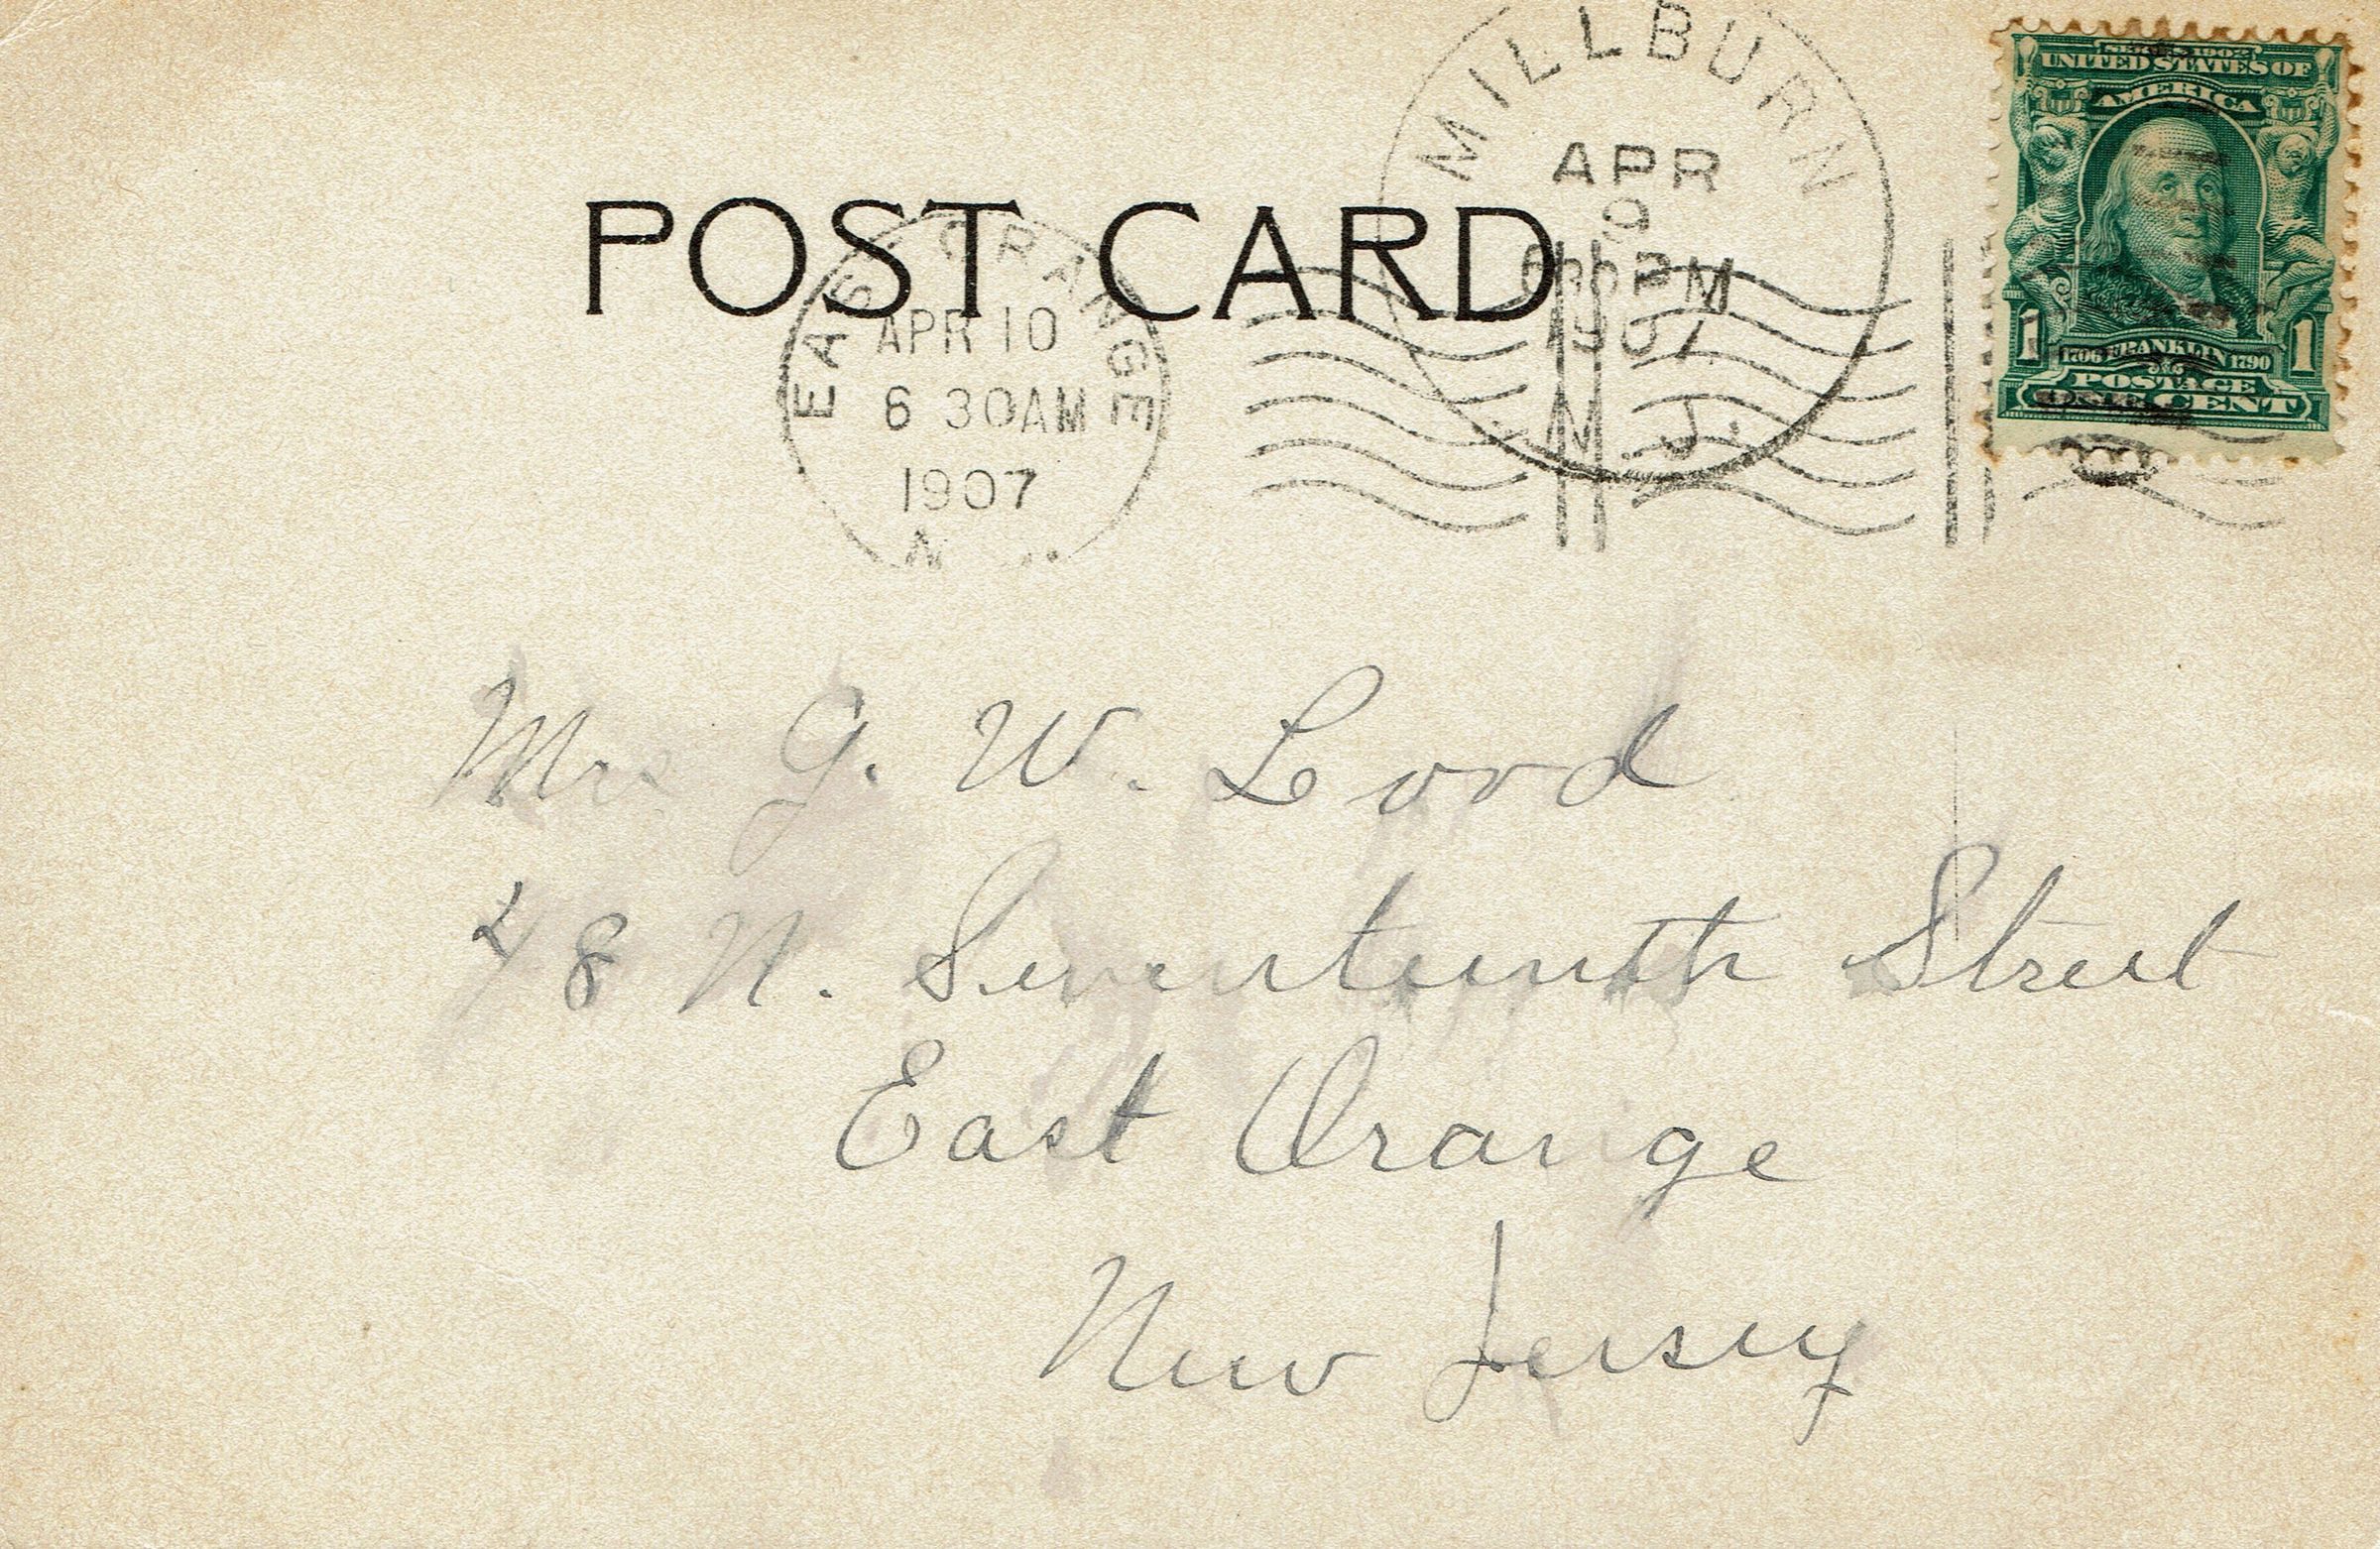 SERIES 1902
UNITED STATES OF
AMERICA
1 1706 FRANKLIN 1790 1
POSTAGE
ONE CENT
MILLBURN
APR
9
PM
1907
N.J.
POST CARD
EAST ORANGE
APR 10
6 30AM
1907
N
Mrs G. W. Lord
48 N. Seventeenth Street
East Orange
New Jersey